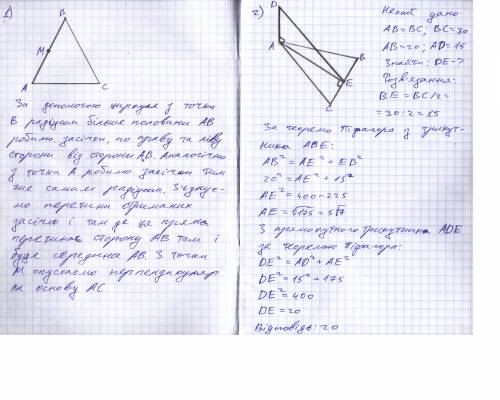 1)
B
M
A
C
За допомогою циркуля з точки
В радіусом більше половини АВ
робимо засічки, по праву та ліву
сторони від сторони АВ. Аналогічно
з точки А робимо засічки тим
же самим радіусом. З'єдную-
мо перетини отриманих
засічок і там де ця пряма
перетинає сторону АВ там і
буде середина АВ. З точки
М опускаємо перпендикуляр
на основу АС
2)
D
A
B
E
C
Нехай дано
AB=BC; BC=30
AB=20; AD=15
Знайти: DE-?
Розв'язання:
BE=BC/2=
=30:2=15
За теоремою Піфагора з трикут-
ника ABE:
AB²=AE²+EB²
20²=AE²+15²
AE²=400-225
AE=√175=5√7
З прямокутного трикутника ADE
за теоремою Піфагора:
DE²=AD²+AE²
DE²=15²+175
DE²=400
DE=20
Відповідь: 20